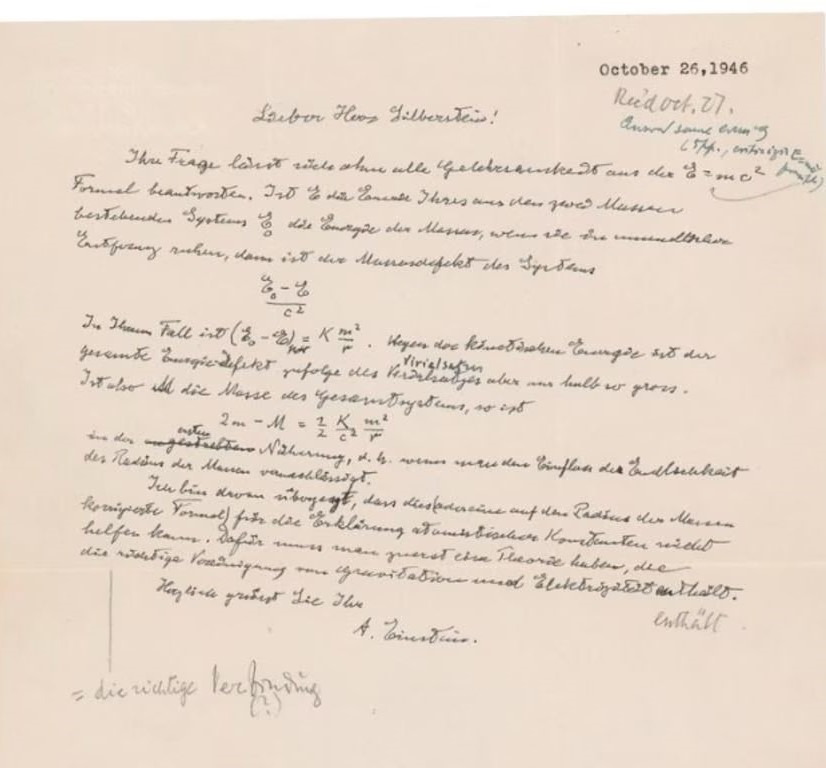 October 26, 1946
Rec'd Oct. 27.
Lieber Herr Silberstein!
Ihre Frage lässt sich ohne alle Gelehrsamkeit aus der E = mc²
Formel beantworten. Ist E die Energie Ihres aus den zwei Massen
bestehenden Systems E₀ die Energie der Massen, wenn sie in unendlicher
Entfernung ruhen, dann ist der Massendefekt des Systems
E₀ - E
c²
In Ihrem Fall ist (E₀ - E) = K m²/r . Wegen der kinetischen Energie ist der
Virialsatzes
gesamte Energiedefekt zufolge des Virialsatzes aber nur halb so gross.
Ist also M die Masse des Gesamtsystems, so ist
2m - M = 1/2 K/c² m²/r
ersten
in der angestrebten Näherung, d. h. wenn man den Einfluss der Endlichkeit
des Radius der Massen vernachlässigt.
Ich bin davon überzeugt, dass dies (oder eine auf den Radius der Massen
korrigierte Formel) für die Erklärung atomistischer Konstanten nicht
helfen kann. Dafür muss man zuerst eine Theorie haben, die
die richtige Vereinigung von Gravitation und Elektrizität enthält.
enthält
Herzlich grüsst Sie Ihr
A. Einstein.
= die richtige Verbindung
(?)